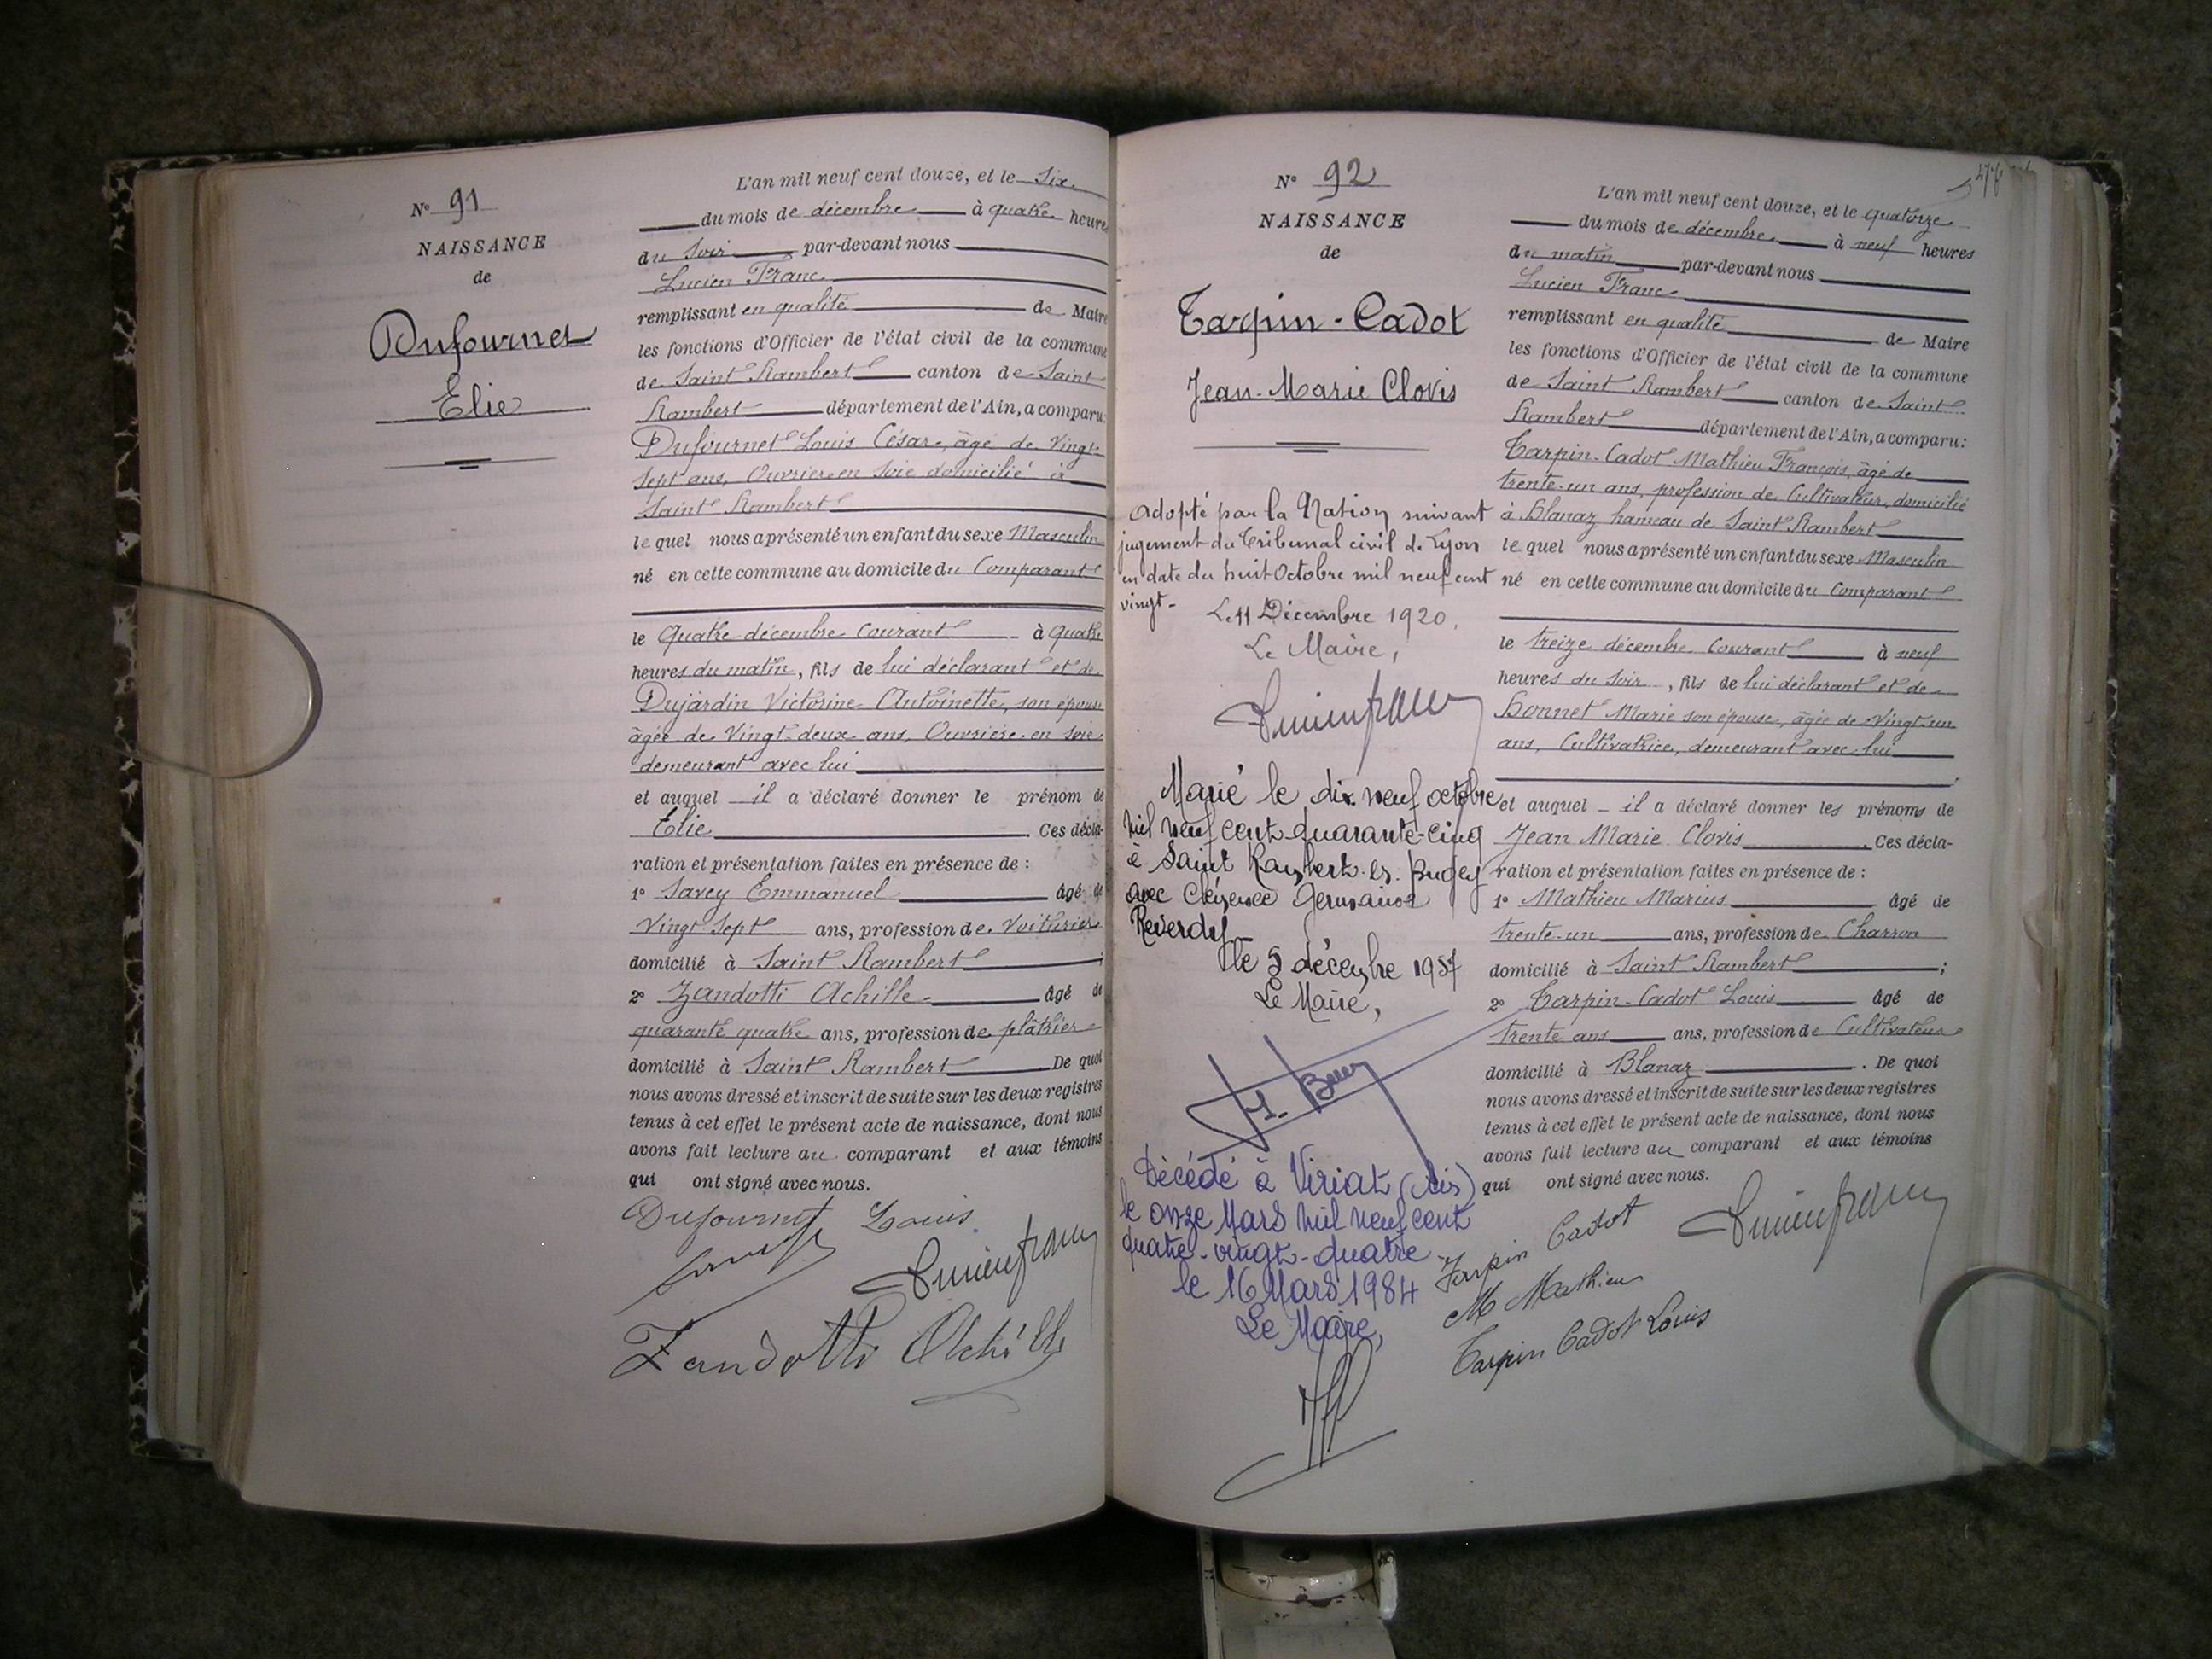 N° 91
NAISSANCE
de
Dufournet
Elie
L'an mil neuf cent douze, et le six
du mois de décembre à quatre heures
du soir par-devant nous
Lucien Franc
remplissant en qualité de Maire
les fonctions d'Officier de l'état civil de la commune
de Saint Rambert canton de Saint
Rambert département de l'Ain, a comparu:
Dufournet Louis César, âgé de vingt
sept ans, Ouvrier en soie domicilié à
Saint Rambert
lequel nous a présenté un enfant du sexe Masculin
né en cette commune au domicile du Comparant
le Quatre décembre courant à quatre
heures du matin, fils de lui déclarant et de
Dujardin Victorine Antoinette, son épouse
âgée de vingt-deux ans, Ouvrière en soie
demeurant avec lui
et auquel il a déclaré donner le prénom de
Elie Ces décla-
ration et présentation faites en présence de :
1° Savey Emmanuel âgé de
vingt sept ans, profession de Voiturier
domicilié à Saint Rambert ;
2° Zandotti Achille âgé de
quarante quatre ans, profession de plâtrier
domicilié à Saint Rambert De quoi
nous avons dressé et inscrit de suite sur les deux registres
tenus à cet effet le présent acte de naissance, dont nous
avons fait lecture au comparant et aux témoins
qui ont signé avec nous.
Dufournet Louis
Lucien franc
Zandotti Achille
N° 92
NAISSANCE
de
Tarpin-Cadot
Jean-Marie Clovis
Adopté par la Nation suivant
jugement du Tribunal civil de Lyon
en date du huit Octobre mil neuf cent
vingt-
Le 11 Décembre 1920,
Le Maire,
Lucien franc
Marié le dix-neuf octobre
mil neuf cent quarante-cinq
à Saint Rambert-en-Bugey
avec Clémence Germaine
Reverdy
le 5 décembre 1957
Le Maire,
Décédé à Viriat (Ain)
le onze Mars mil neuf cent
quatre-vingt-quatre
le 16 Mars 1984
Le Maire,
L'an mil neuf cent douze, et le quatorze
du mois de décembre à neuf heures
du matin par-devant nous
Lucien Franc
remplissant en qualité de Maire
les fonctions d'Officier de l'état civil de la commune
de Saint Rambert canton de Saint
Rambert département de l'Ain, a comparu:
Tarpin-Cadot Mathieu François, âgé de
trente-un ans, profession de Cultivateur, domicilié
à Blanaz hameau de Saint Rambert
lequel nous a présenté un enfant du sexe Masculin
né en cette commune au domicile du Comparant
le treize décembre courant à neuf
heures du soir, fils de lui déclarant et de
Bonnet Marie son épouse, âgée de vingt-un
ans, Cultivatrice, demeurant avec lui
et auquel il a déclaré donner les prénoms de
Jean Marie Clovis Ces décla-
ration et présentation faites en présence de :
1° Mathieu Marius âgé de
trente-un ans, profession de Charron
domicilié à Saint Rambert ;
2° Tarpin-Cadot Louis âgé de
trente ans ans, profession de Cultivateur
domicilié à Blanaz . De quoi
nous avons dressé et inscrit de suite sur les deux registres
tenus à cet effet le présent acte de naissance, dont nous
avons fait lecture au comparant et aux témoins
qui ont signé avec nous.
Tarpin Cadot
Lucien franc
M Mathieu
Tarpin Cadot Louis